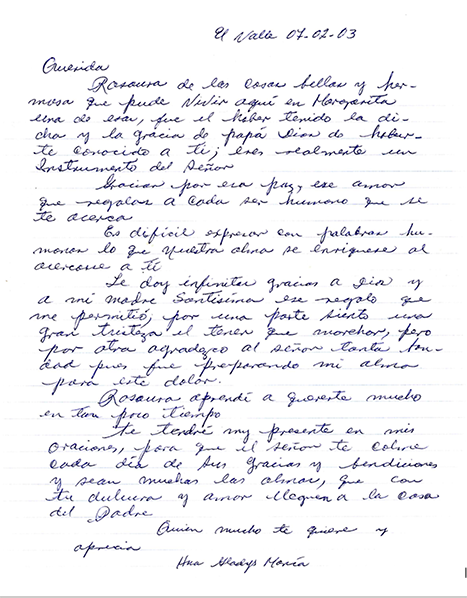 El Valle 07-02-03
Querida
Rosaura de las cosas bellas y her-
mosa que pude vivir aquí en Margarita
una de esas, fue el haber tenido la di-
cha y la gracia de papá Dios de haber-
te conocido a ti; eres realmente un
Instrumento del Señor
Gracias por esa paz, ese amor
que regalas a cada ser humano que se
te acerca
Es difícil expresar con palabras hu-
manas lo que nuestra alma se enriquese al
acercase a ti
Le doy infinitas gracias a Dios y
a mi madre Santísima ese regalo que
me permitió, por una parte siento una
gran tristeza el tener que marchar, pero
por otra agradezco al señor tanta bon-
dad pues fue preparando mi alma
para este dolor.
Rosaura aprendí a quererte mucho
en tan poco tiempo
te tendré muy presente en mis
oraciones, para que el señor te colme
cada día de sus gracias y bendiciones
y sean muchas las almas, que con
tu dulzura y amor lleguen a la casa
del Padre
Quien mucho te quiere y
aprecia
Hna Gladys María